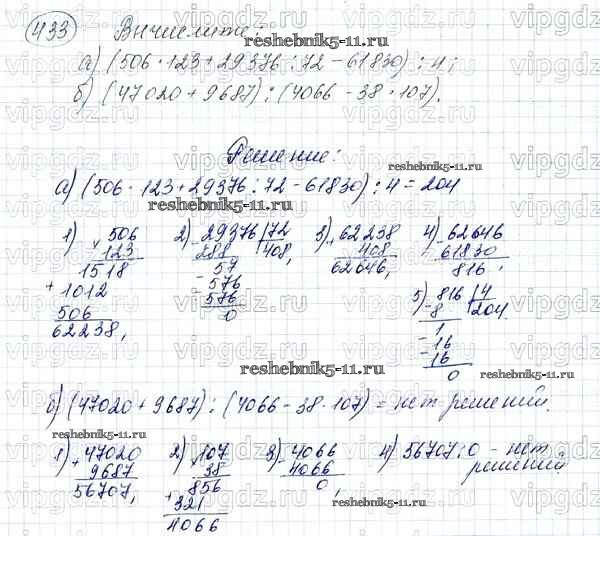 433 Вычислите:
а) (506 · 123 + 29376 : 72 – 61830) : 4;
б) (47020 + 9687) : (4066 – 38 · 107).
Решение:
а) (506 · 123 + 29376 : 72 – 61830) : 4 = 204
1) 506
× 123
1518
+ 1012
506
62238,
2) 29376 | 72
– 288 | 408,
57
– 576
576
0
3) 62238
+ 408
62646,
4) 62646
– 61830
816,
5) 816 | 4
– 8 | 204.
1
– 16
– 16
0
б) (47020 + 9687) : (4066 – 38 · 107) = нет решений.
1) 47020
+ 9687
56707,
2) 107
× 38
856
+ 321
4066
3) 4066
– 4066
0,
4) 56707 : 0 – нет
решений
reshebnik5-11.ru
reshebnik5-11.ru
reshebnik5-11.ru
reshebnik5-11.ru
reshebnik5-11.ru
reshebnik5-11.ru
vipgdz.ru